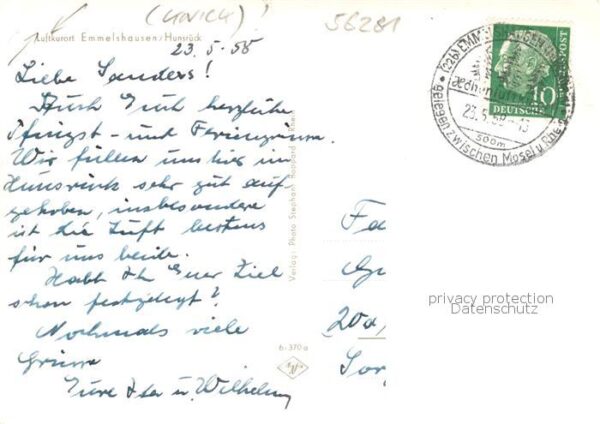 (Horick)!
56281
Luftkurort Emmelshausen/Hunsrück
23.5.58
Liebe Sanders!
Auch Euch herzliche
Pfingst- und Feriengrüsse.
Wir fühlen uns hier im
Hunsrück sehr gut auf-
gehoben, insbesondere
ist die Luft bestens
für uns beide.
Habt Ihr Euer Ziel
schon festgelegt?
Nochmals viele
Grüsse
Eure Ida u. Wilhelm
Verlag: Photo Stephan, Boppard a. Rhein
6-370a
(22b) EMMELSHAUSEN
23.5.58-15
500m
gelegen zwischen Mosel u. Rhein
DEUTSCHE
POST
10
Fa
Gu
20a,
Sor
privacy protection
Datenschutz